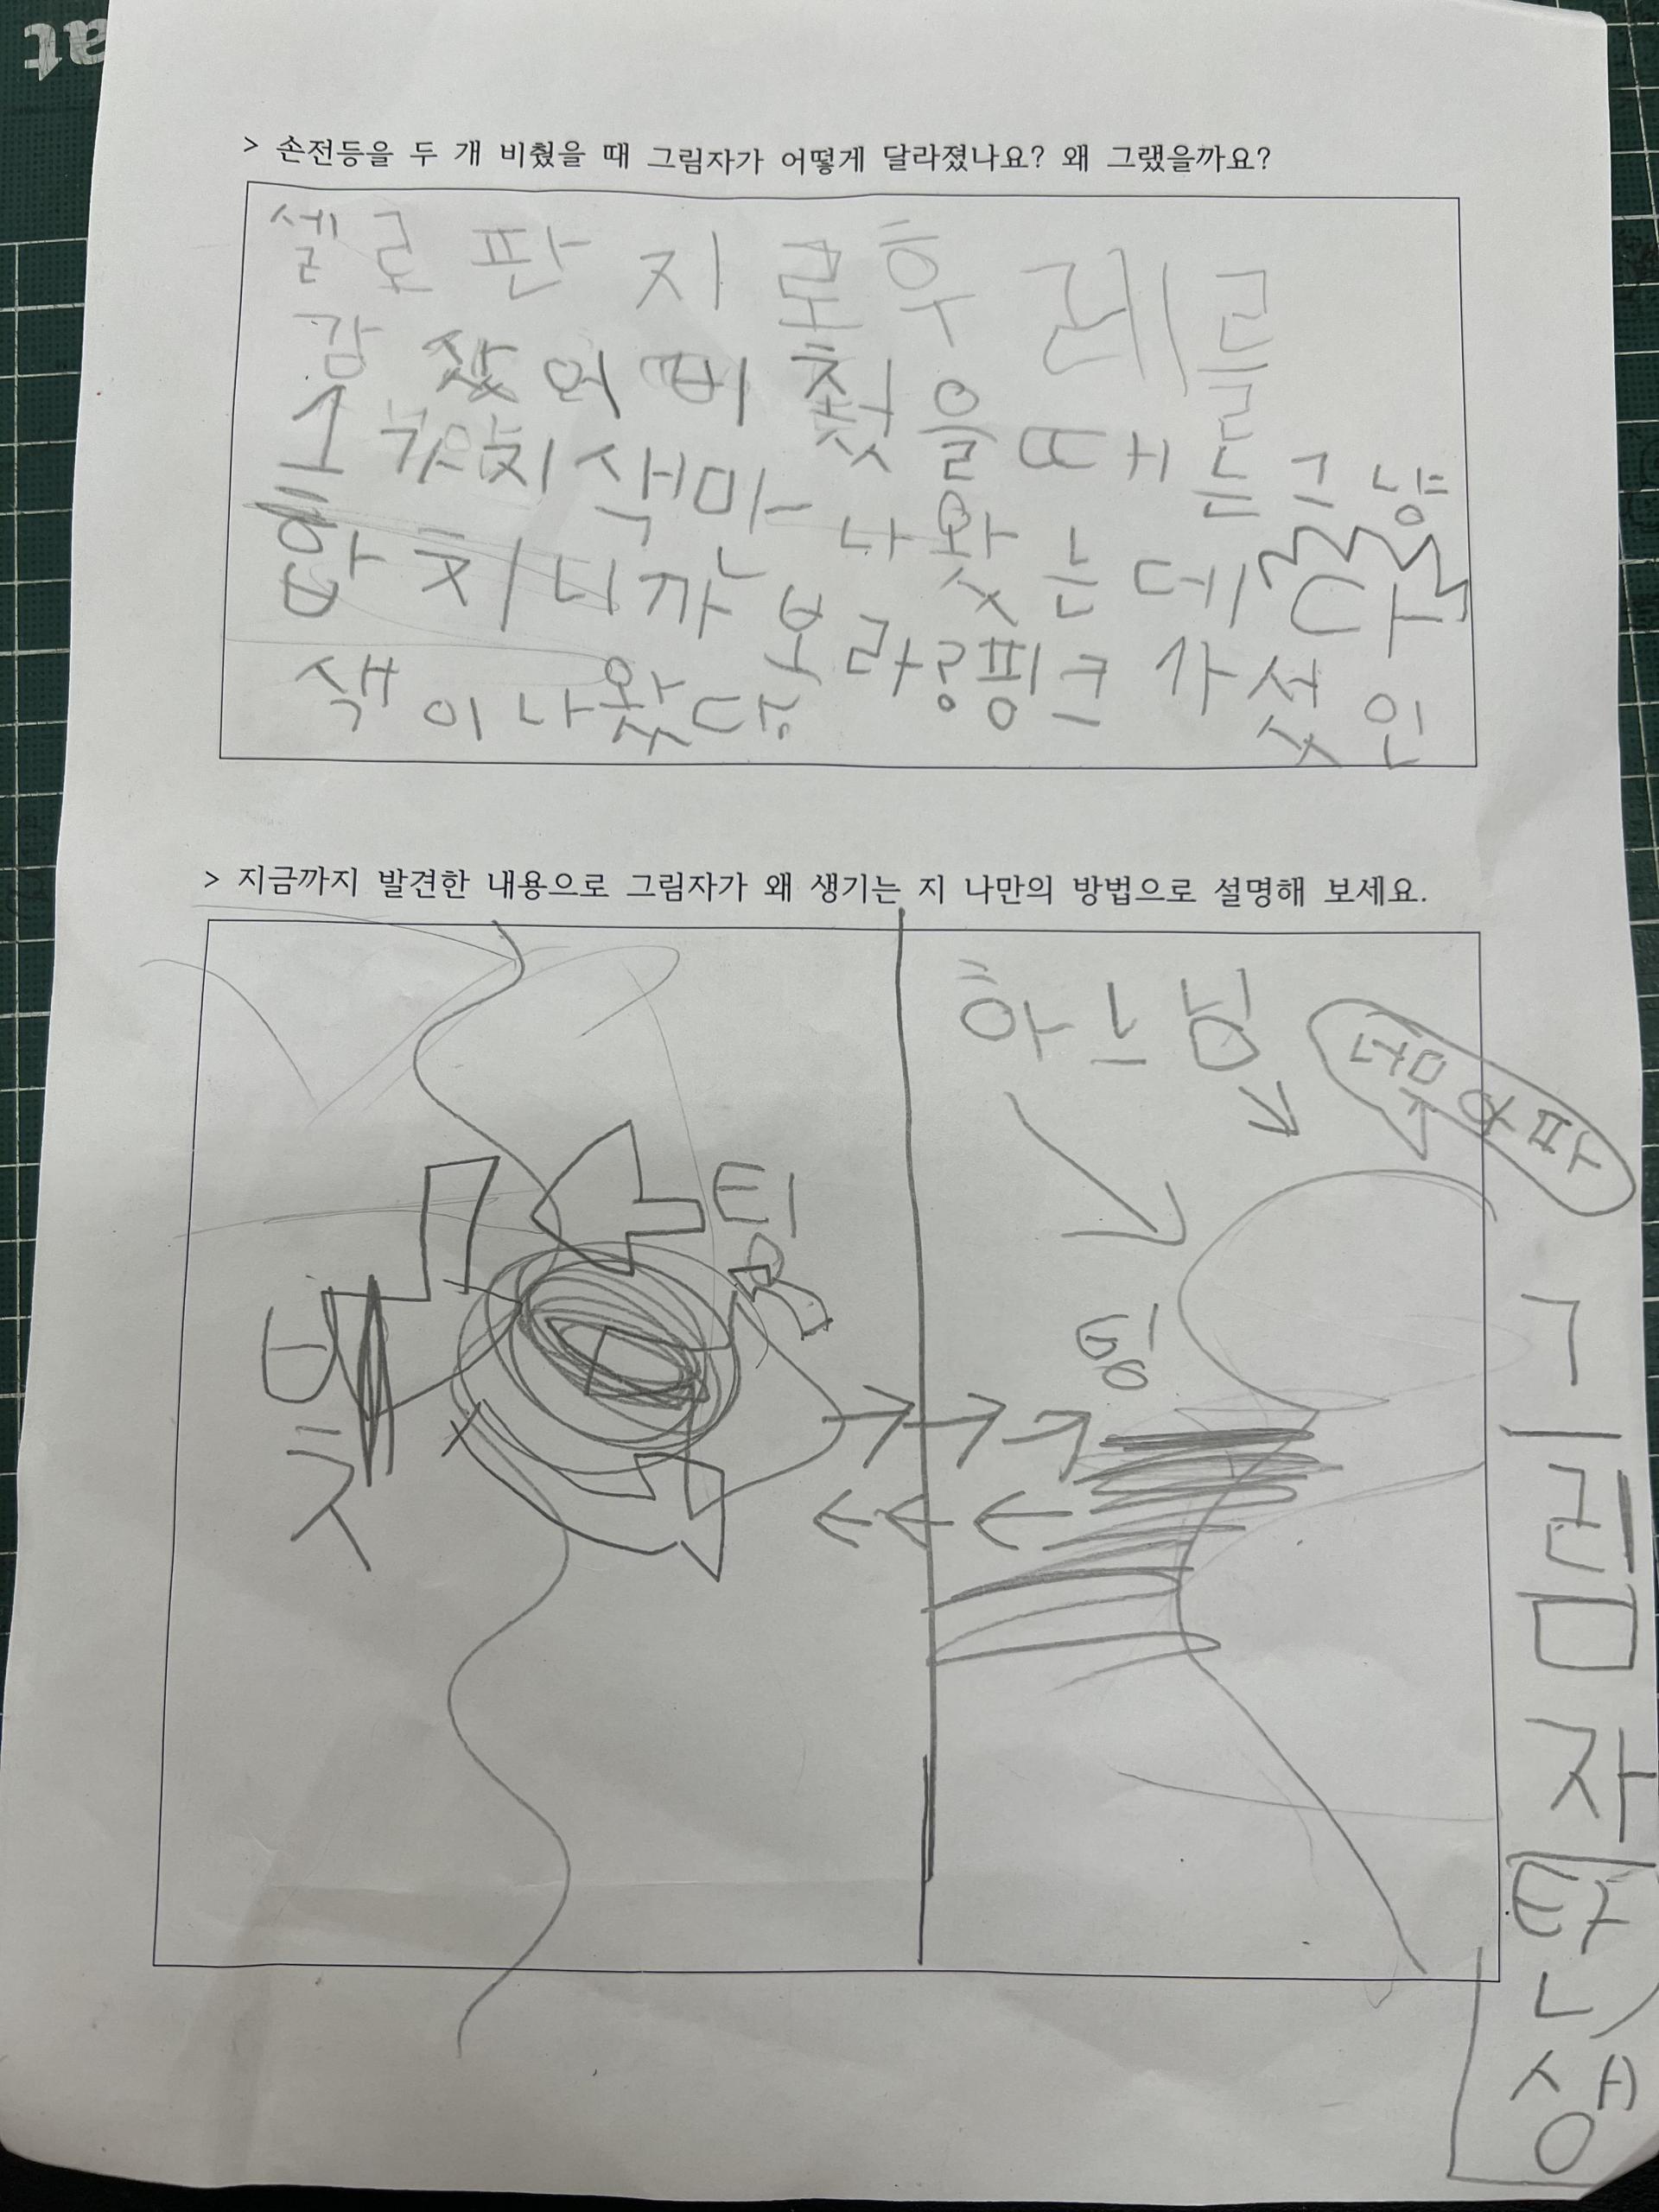 > 손전등을 두 개 비췄을 때 그림자가 어떻게 달라졌나요? 왜 그랬을까요?
셀로판지로 후레를
감쌌어 비췄을때는 그냥
그 색만 나왔는데 다
합치니까 보라?핑크 가 섯인
색이 나왔다.
> 지금까지 발견한 내용으로 그림자가 왜 생기는 지 나만의 방법으로 설명해 보세요.
하느님
너무 아파
슈팅
빛
팅
그림자
탄생